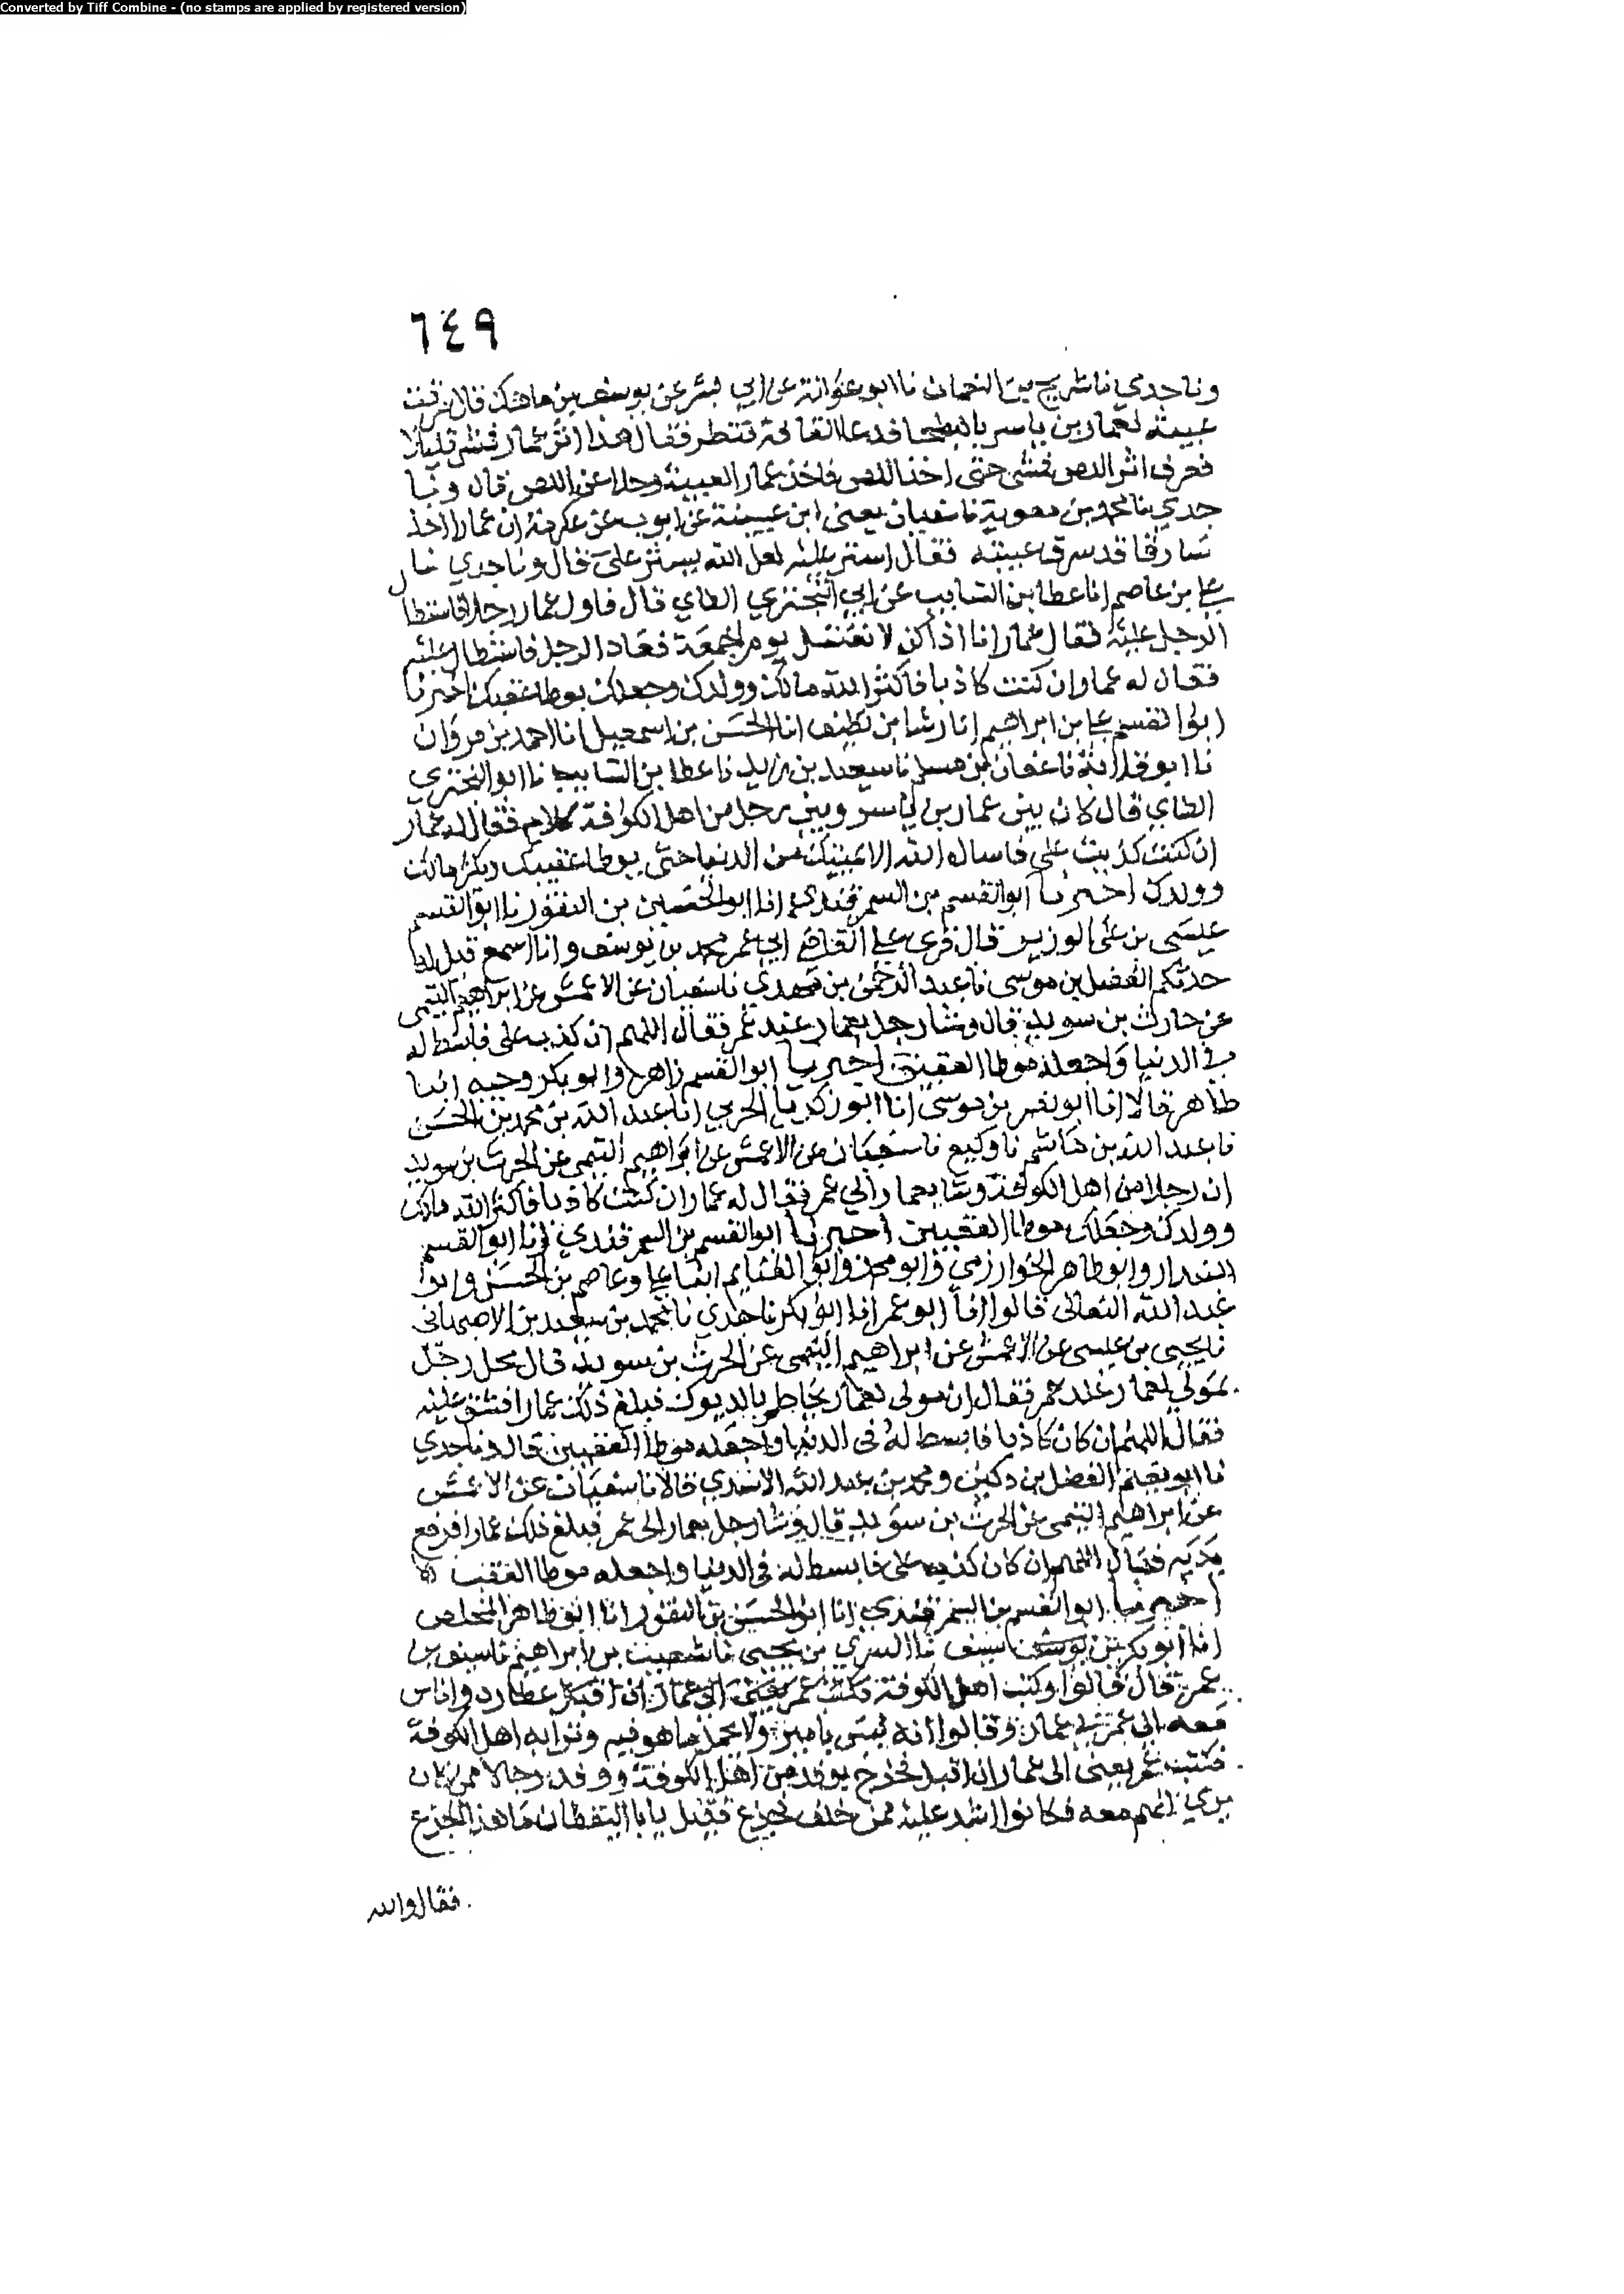 Converted by Tiff Combine - (no stamps are applied by registered version)
٦٤٩
ونا جدي نا شريح بن النعمان نا ابو عوانة عن ابي بشر عن يوسف بن ماهك قال سرقت
عيبة لعمار بن ياسر بالبطحا فدعا القافة تنظر فقال هذا اثر عمار فمشى قليلا
فعرف اثر اللص فمشى حتى اخذ اللص فاخذ عمار العيبة وخلا عن اللص قال ونا
جدي نا محمد بن معوية نا سفيان يعنى ابن عيينة عن ايوب عن عكرمة ان عمارا اخذ
سارقا قد سرق عيبته فقال استر عليه لعل الله يستر على قال ونا جدي نا
على بن عاصم انا عطا بن السايب عن ابي البختري الطاي قال قاول عمار رجلا فاستطال
الرجل عليه فقال عمار انا اذا كمن لا يغتسل يوم الجمعة فعاد الرجل فاستطال عليه
فقال له عمار ان كنت كاذبا فاكثر الله مالك وولدك وجعلك يوطا عقبك اخبرنا
ابو القسم على بن ابراهيم انا رشا بن نظيف انا الحسن بن اسمعيل انا احمد بن مروان
نا ابو قلابة نا عفان بن مسلم نا سعيد بن زيد نا عطا بن السايب نا ابو البختري
الطاي قال كان بين عمار بن ياسر وبين رجل من اهل الكوفة كلام فقال له عمار
ان كنت كذبت على فاسال الله الا يميتك من الدنيا حتى يوطا عقبيك ويكثر مالك
وولدك اخبرنا ابو القسم بن السمرقندي انا ابو الحسين بن النقور نا ابو القسم
عيسى بن على الوزير قال قرى على القاضي ابي عمر محمد بن يوسف وانا اسمع قيل له
حدثكم الفضل بن موسى نا عبد الرحمن بن مهدي نا سفيان عن الاعمش عن ابراهيم التيمى
عن حارث بن سويد قال وشا رجل بعمار عند عمر فقال اللهم ان كذب على فابسط له
في الدنيا واجعله موطا العقبين اخبرنا ابو القسم زاهر وابو بكر وجيه ابنا
طاهر قالا انا ابو نصر بن موسى انا ابو زكريا الحربي انا عبد الله بن محمد بن الحسن
نا عبد الله بن هاشم نا وكيع نا سفيان عن الاعمش عن ابراهيم التيمى عن الحرث بن سويد
ان رجلا من اهل الكوفة وشا بعمار الي عمر فقال له عمار ان كنت كاذبا فاكثر الله مالك
وولدك وجعلك موطا العقبين اخبرنا ابو القسم بن السمرقندي انا ابو القسم
البندار وابو طاهر الخوارزمي وابو محمد وابو الغنايم ابنا على وعاصم بن الحسن وابو
عبد الله النعالى قالوا انا ابو عمر انا ابو بكر نا جدي نا محمد بن سعيد بن الاصبهانى
نا يحيى بن عيسى عن الاعمش عن ابراهيم التيمى عن الحرث بن سويد قال محل رجل
بمولي لعمار عند عمر فقال ان مولى لعمار يخاطر بالديوك فبلغ ذلك عمارا فشق عليه
فقال اللهم ان كان كاذبا فابسط له فى الدنيا واجعله موطا العقبين قال ونا جدي
نا ابو نعيم الفضل بن دكين ومحمد بن عبد الله الاسدي قالا نا سفيان عن الاعمش
عن ابراهيم التيمى عن الحرث بن سويد قال وشا رجل بعمار الى عمر فبلغ ذلك عمارا فرفع
يديه فقال اللهم ان كان كذب على فابسط له فى الدنيا واجعله موطا العقب
اخبرنا ابو القسم بن السمرقندي انا ابو الحسين بن النقور انا ابو طاهر المخلص
انا ابو بكر بن سيف نا السري بن يحيى نا شعيب بن ابراهيم نا سيف بن
عمر قال قالوا وكتب اهل الكوفة عطارد واناس
معه الى عمر في عمار وقالوا انه ليس بامير ولا يحتمل ما هو فيه ونزا به اهل الكوفة
فكتب عمر يعنى الى عمار ان اقبل فخرج بوفد من اهل الكوفة ووفد رجالا ممن كان
يري انهم معه فكانوا اشد عليه ممن خلف فجزع فقيل يابا اليقظان ما هذا الجزع
فقال والله